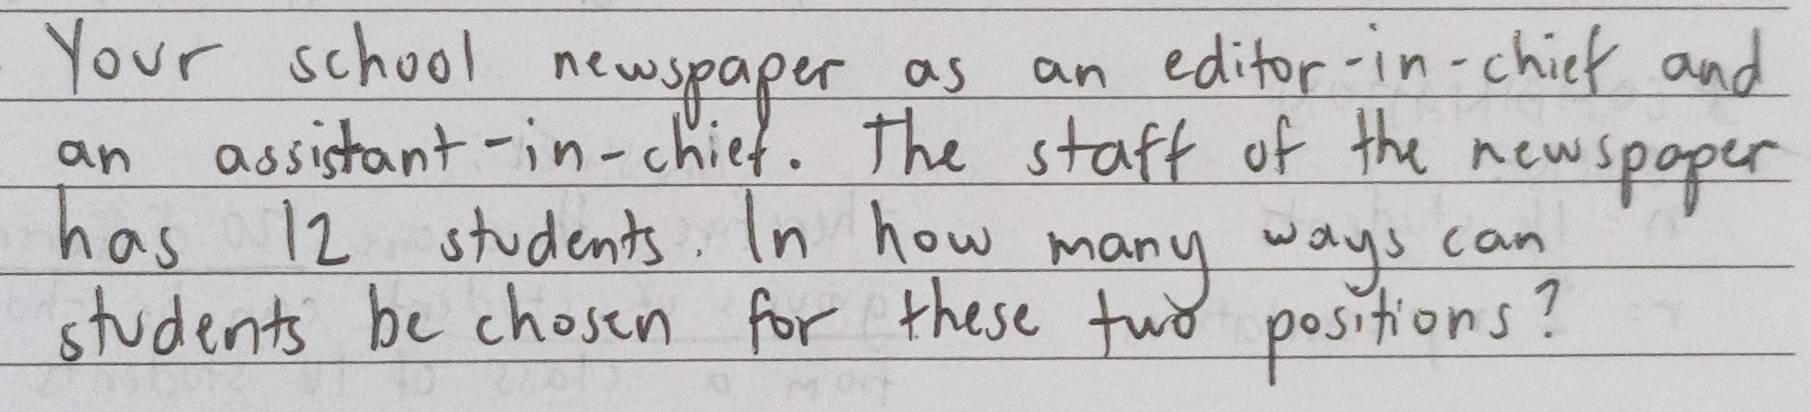 Your school newspaper as an editor-in-chief and
an assistant-in-chief. The staff of the newspaper
has 12 students. In how many ways can
students be chosen for these two positions?